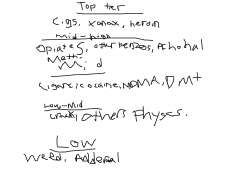 Top tier
Cigs, xanax, heroin
Mid-high
Opiates, other benzos, Alchohal
Meth
Mid
Cigars, cocaine, MDMA, DMT
Low-Mid
others Physcs.
Low
Weed, Adderal